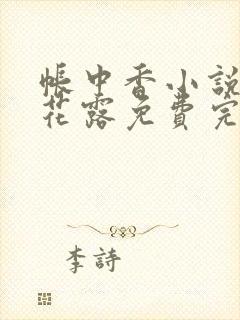 帳中香小說
花露免費完
李詩